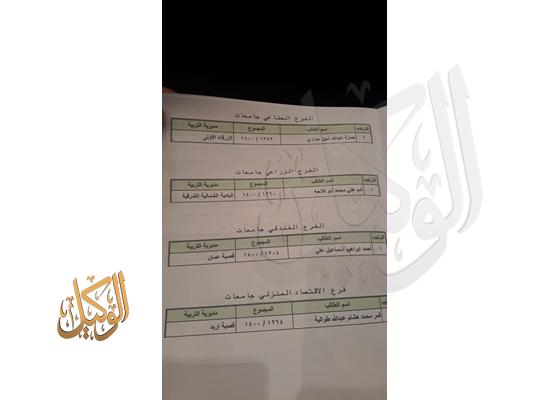 الفرع الصناعي جامعات
الترتيب اسم الطالب المجموع مديرية التربية
١ حمزة عبدالله أمين حواري ١٣٥٢ / ١٤٠٠ الزرقاء الأولى
الفرع الزراعي جامعات
الترتيب اسم الطالب المجموع مديرية التربية
١ ادم علي محمد أبو قاعه ١٢٦٠ / ١٤٠٠ البادية الشمالية الشرقية
الفرع الفندقي جامعات
الترتيب اسم الطالب المجموع مديرية التربية
١ أحمد إبراهيم إسماعيل علي ١٢٠٤ / ١٤٠٠ قصبة عمان
فرع الاقتصاد المنزلي جامعات
اسم الطالب المجموع مديرية التربية
محمد هشام عبدالله طوالبة ١٢٦٤ / ١٤٠٠ قصبة إربد
الوكيل
الوكيل